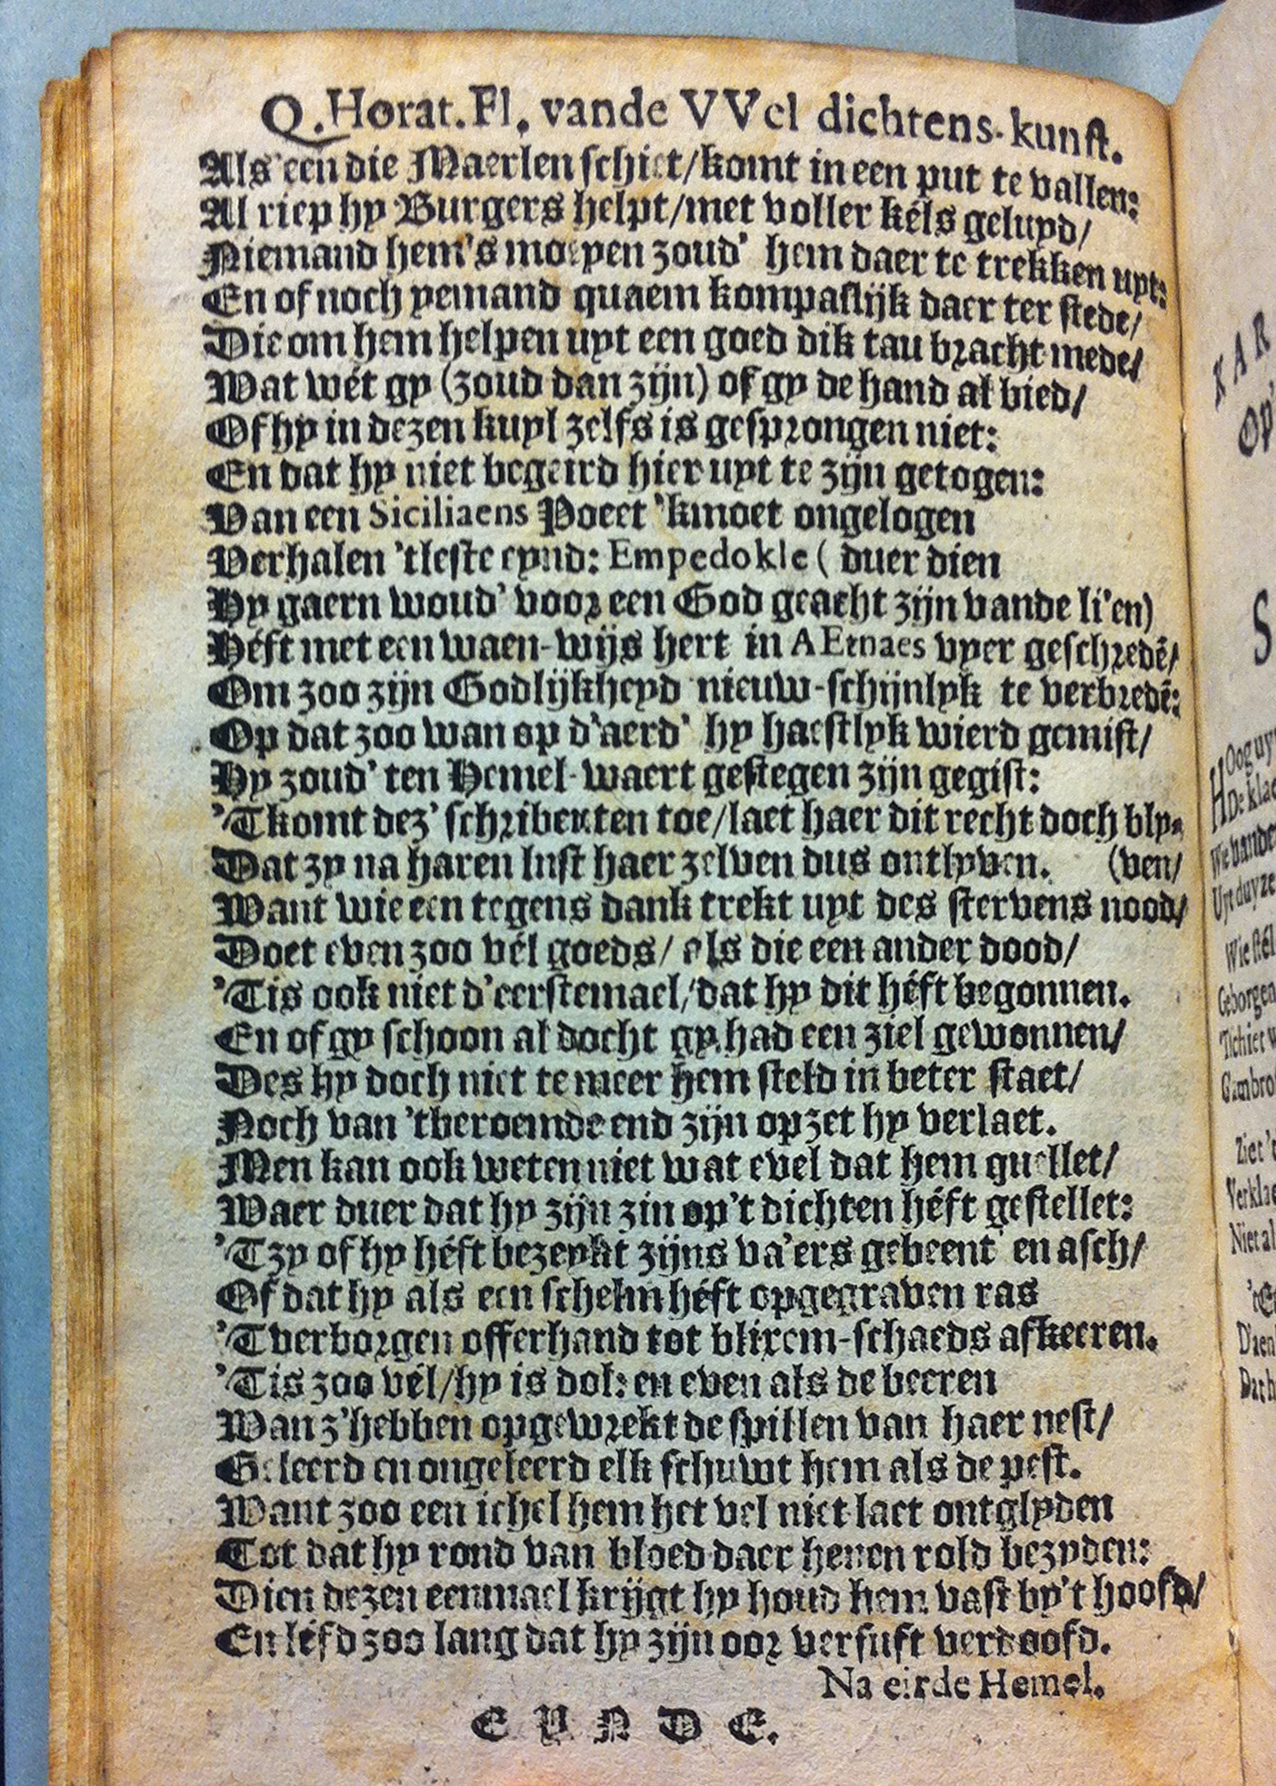 Q. Horat. Fl. vande VVel dichtens-kunst.
Als een die Maerlen schiet/komt in een put te vallen:
Al riep hy Burgers helpt/met voller kéls geluyd/
Niemand hem's moeyen zoud' hem daer te trekken uyt:
En of noch yemand quaem kompaslijk daer ter stede/
Die om hem helpen uyt een goed dik tau bracht mede/
Wat wét gy (zoud dan zijn) of gy de hand al bied/
Of hy in dezen kuyl zelfs is gesprongen niet:
En dat hy niet begeird hier uyt te zijn getogen:
Van een Siciliaens Poeet 'kmoet ongelogen
Verhalen 'tleste eynd: Empedokle ( duer dien
Hy gaern woud' voor een God geacht zijn vande li'en)
Héft met een waen-wijs hert in AEtnaes vyer geschredē/
Om zoo zijn Godlijkheyd nieuw-schijnlyk te verbredē:
Op dat zoo wan op d'aerd' hy haestlyk wierd gemist/
Hy zoud' ten Hemel-waert gestegen zijn gegist:
'Tkomt dez' schribenten toe/laet haer dit recht doch bly-
Dat zy na haren lust haer zelven dus ontlyven. (ven/
Want wie een tegens dank trekt uyt des stervens nood/
Doet even zoo vél goeds/ als die een ander dood/
'Tis ook niet d'eerstemael/dat hy dit héft begonnen.
En of gy schoon al docht gy had een ziel gewonnen/
Des hy doch niet te meer hem steld in beter staet/
Noch van 'tberoemde end zijn opzet hy verlaet.
Men kan ook weten niet wat evel dat hem quellet/
Waer duer dat hy zijn zin op't dichten héft gestellet:
'Tzy of hy héft bezeykt zijns va'ers gebeent en asch/
Of dat hy als een schelm héft opgegraven ras
'Tverborgen offerhand tot blixem-schaeds afkeeren.
'Tis zoo vél/hy is dol: en even als de beeren
Wan z'hebben opgewrekt de spillen van haer nest/
Geleerd en ongeleerd elk schuwt hem als de pest.
Want zoo een ichel hem het vel niet laet ontglyden
Tot dat hy rond van bloed daer henen rold bezyden:
Dien dezen eenmael krijgt hy houd hem vast by't hoofd/
En léfd zoo lang dat hy zijn oor versuft verdoofd.
Na eirde Hemel.
EYNDE.